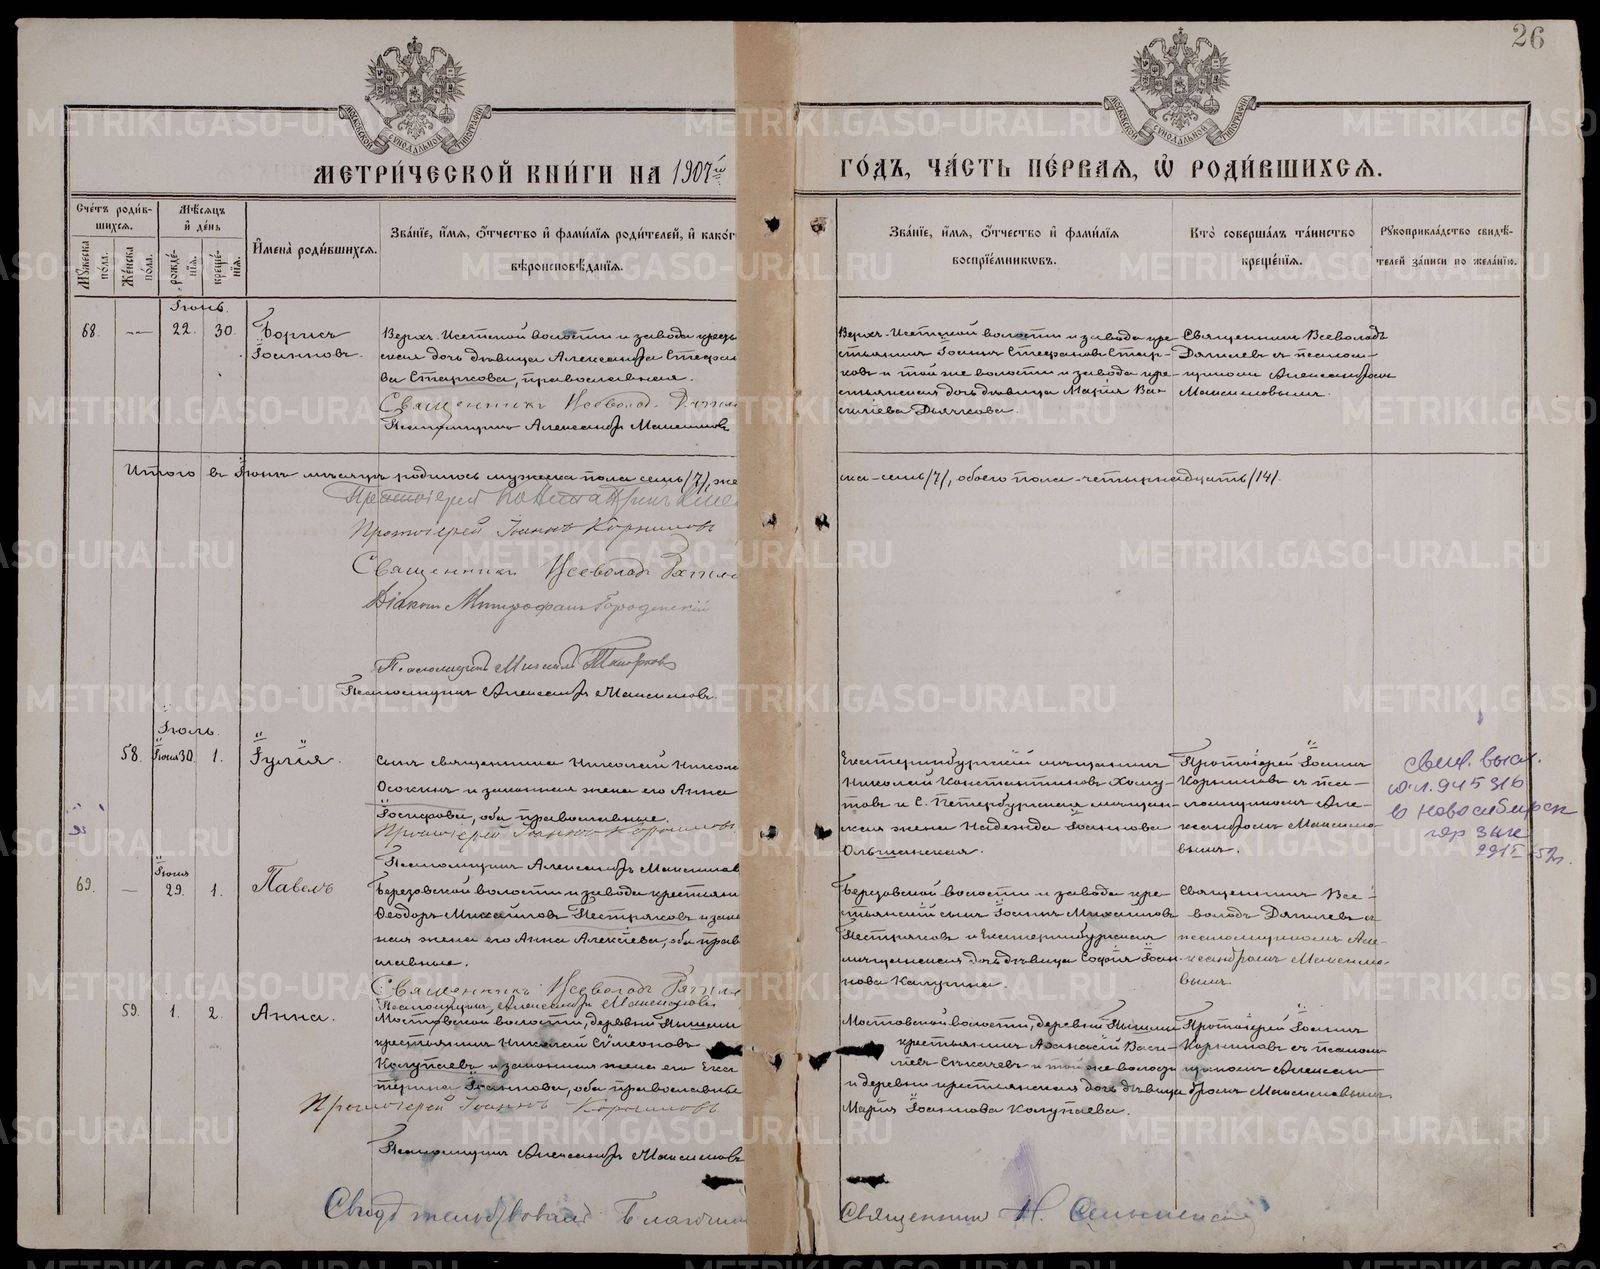 26
МОСКОВСКОЙ СѴНОДАЛЬНОЙ ТИПОГРАФІИ
МОСКОВСКОЙ СѴНОДАЛЬНОЙ ТИПОГРАФІИ
МЕТРИ́ЧЕСКОЙ КНИ́ГИ НА 1907й
ГО́ДЪ, ЧА́СТЬ ПЕ́РВАЯ, Ѡ РОДИ́ВШИХСЯ.
Сче́тъ роди́в-
шихся.
Му́жеска по́ла.
Же́нска по́ла.
Мѣ́сяцъ
и де́нь
рожде́-
нія.
креще́-
нія.
Имена̀ роди́вшихся.
Зва́ніе, и́мя, о́тчество и фами́лія роди́телей, и како́г
вѣроисповѣ́данія.
Зва́ніе, и́мя, о́тчество и фами́лія
воспріе́мниковъ.
Кто̀ соверша́лъ та́инство
креще́нія.
Рукоприкла́дство свидѣ́-
телей за́писи по жела́нію.
Іюнь.
68. — 22. 30.
Борисъ
Іоанновъ.
Верхъ-Исетской волости и завода кресть
ская дочь дѣвица Александра Стефан
ва Старкова, православная.
Священникъ Всеволодъ
Псаломщикъ Александръ Максимовъ
Верхъ-Исетской волости и завода кре-
стьянинъ Іоаннъ Стефановъ Стар-
ковъ и той же волости и завода кре-
стьянская дочь дѣвица Марія Ва-
силіева Дьячкова.
Священникъ Всеволодъ
Дягилевъ съ псалом-
щикомъ Александромъ
Максимовымъ.
Итого въ Іюнѣ мѣсяцѣ родилось мужеска пола семь /7/, же
ска-семь /7/, обоего пола-четырнадцать /14/.
Протоіерей
Протоіерей Іоаннъ Корниловъ
Священникъ Всеволодъ
Діаконъ Митрофанъ
Псаломщикъ
Псаломщикъ Александръ Максимовъ.
Іюль.
58. Іюня 30. 1.
Іулія.
Сынъ священника Николай Никола
Осокинъ и законная жена его Анна
Іосифова, оба православные.
Протоіерей Іоаннъ Корниловъ
Псаломщикъ Александръ Максимовъ
Екатеринбургскій мѣщанинъ
Николай Константиновъ Хому-
товъ и С. Петербургская мѣщан-
ская жена Надежда Іоаннова
Ольшанская.
Протоіерей Іоаннъ
Корниловъ съ пса-
ломщикомъ Але-
ксандромъ Максимо-
вымъ.
свид. выд.
945316
в Новосибирск
гор Загс
69. — Іюня 29. 1.
Павелъ
Березовской волости и завода крестьян
Ѳеодоръ Михаиловъ Пестряковъ и зако
ная жена его Анна Алексіева, оба прав
славные.
Священникъ Всеволодъ
Псаломщикъ Александръ Максимовъ
Березовской волости и завода кре-
стьянскій сынъ Іоаннъ Михаиловъ
Пестряковъ и Екатеринбургская
мѣщанская дочь дѣвица Софія Іоан-
нова Калугина.
Священникъ Все-
володъ Дягилевъ съ
псаломщикомъ Але-
ксандромъ Максимо-
вымъ.
59. 1. 2.
Анна.
Мостовской волости, деревни Пышмы
крестьянинъ Николай Симеоновъ
Колупаевъ и законная жена его Ека
терина Іоаннова, оба православные
Протоіерей Іоаннъ Корниловъ
Псаломщикъ Александръ Максимовъ
Мостовской волости, деревни Пышмы
крестьянинъ Аѳанасій Васи-
ліевъ и той же волости
и деревни крестьянская дочь дѣвица
Марія Іоаннова Колупаева.
Протоіерей Іоаннъ
Корниловъ съ псалом-
щикомъ Алексан-
дромъ Максимовымъ.
Свидѣтельствовалъ Благочин
Священникъ Н.